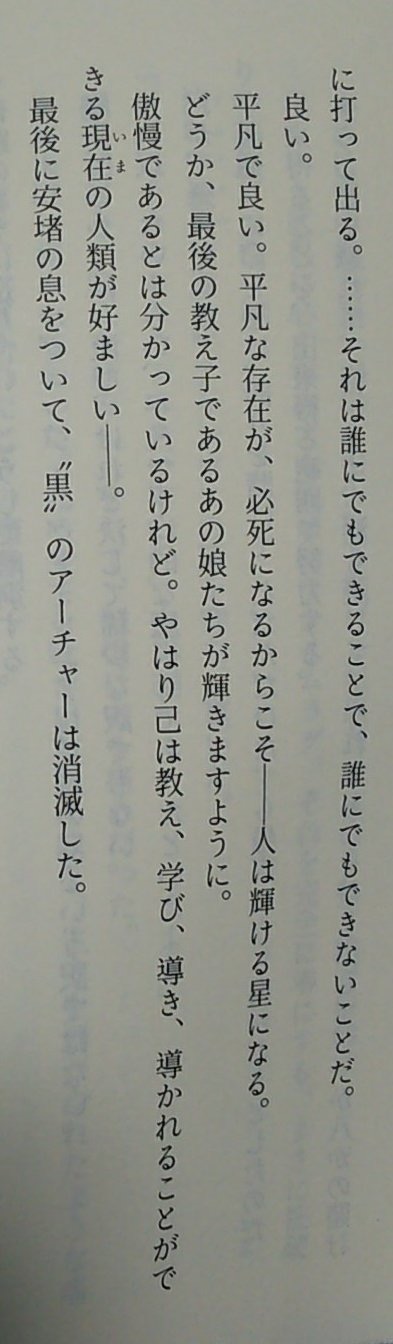 に打って出る。……それは誰にでもできることで、誰にでもできないことだ。
良い。
平凡で良い。平凡な存在が、必死になるからこそ――人は輝ける星になる。
どうか、最後の教え子であるあの娘たちが輝きますように。
傲慢であるとは分かっているけれど。やはり己は教え、学び、導き、導かれることがで
きる現在の人類が好ましい――。
いま
最後に安堵の息をついて、〝黒〟のアーチャーは消滅した。